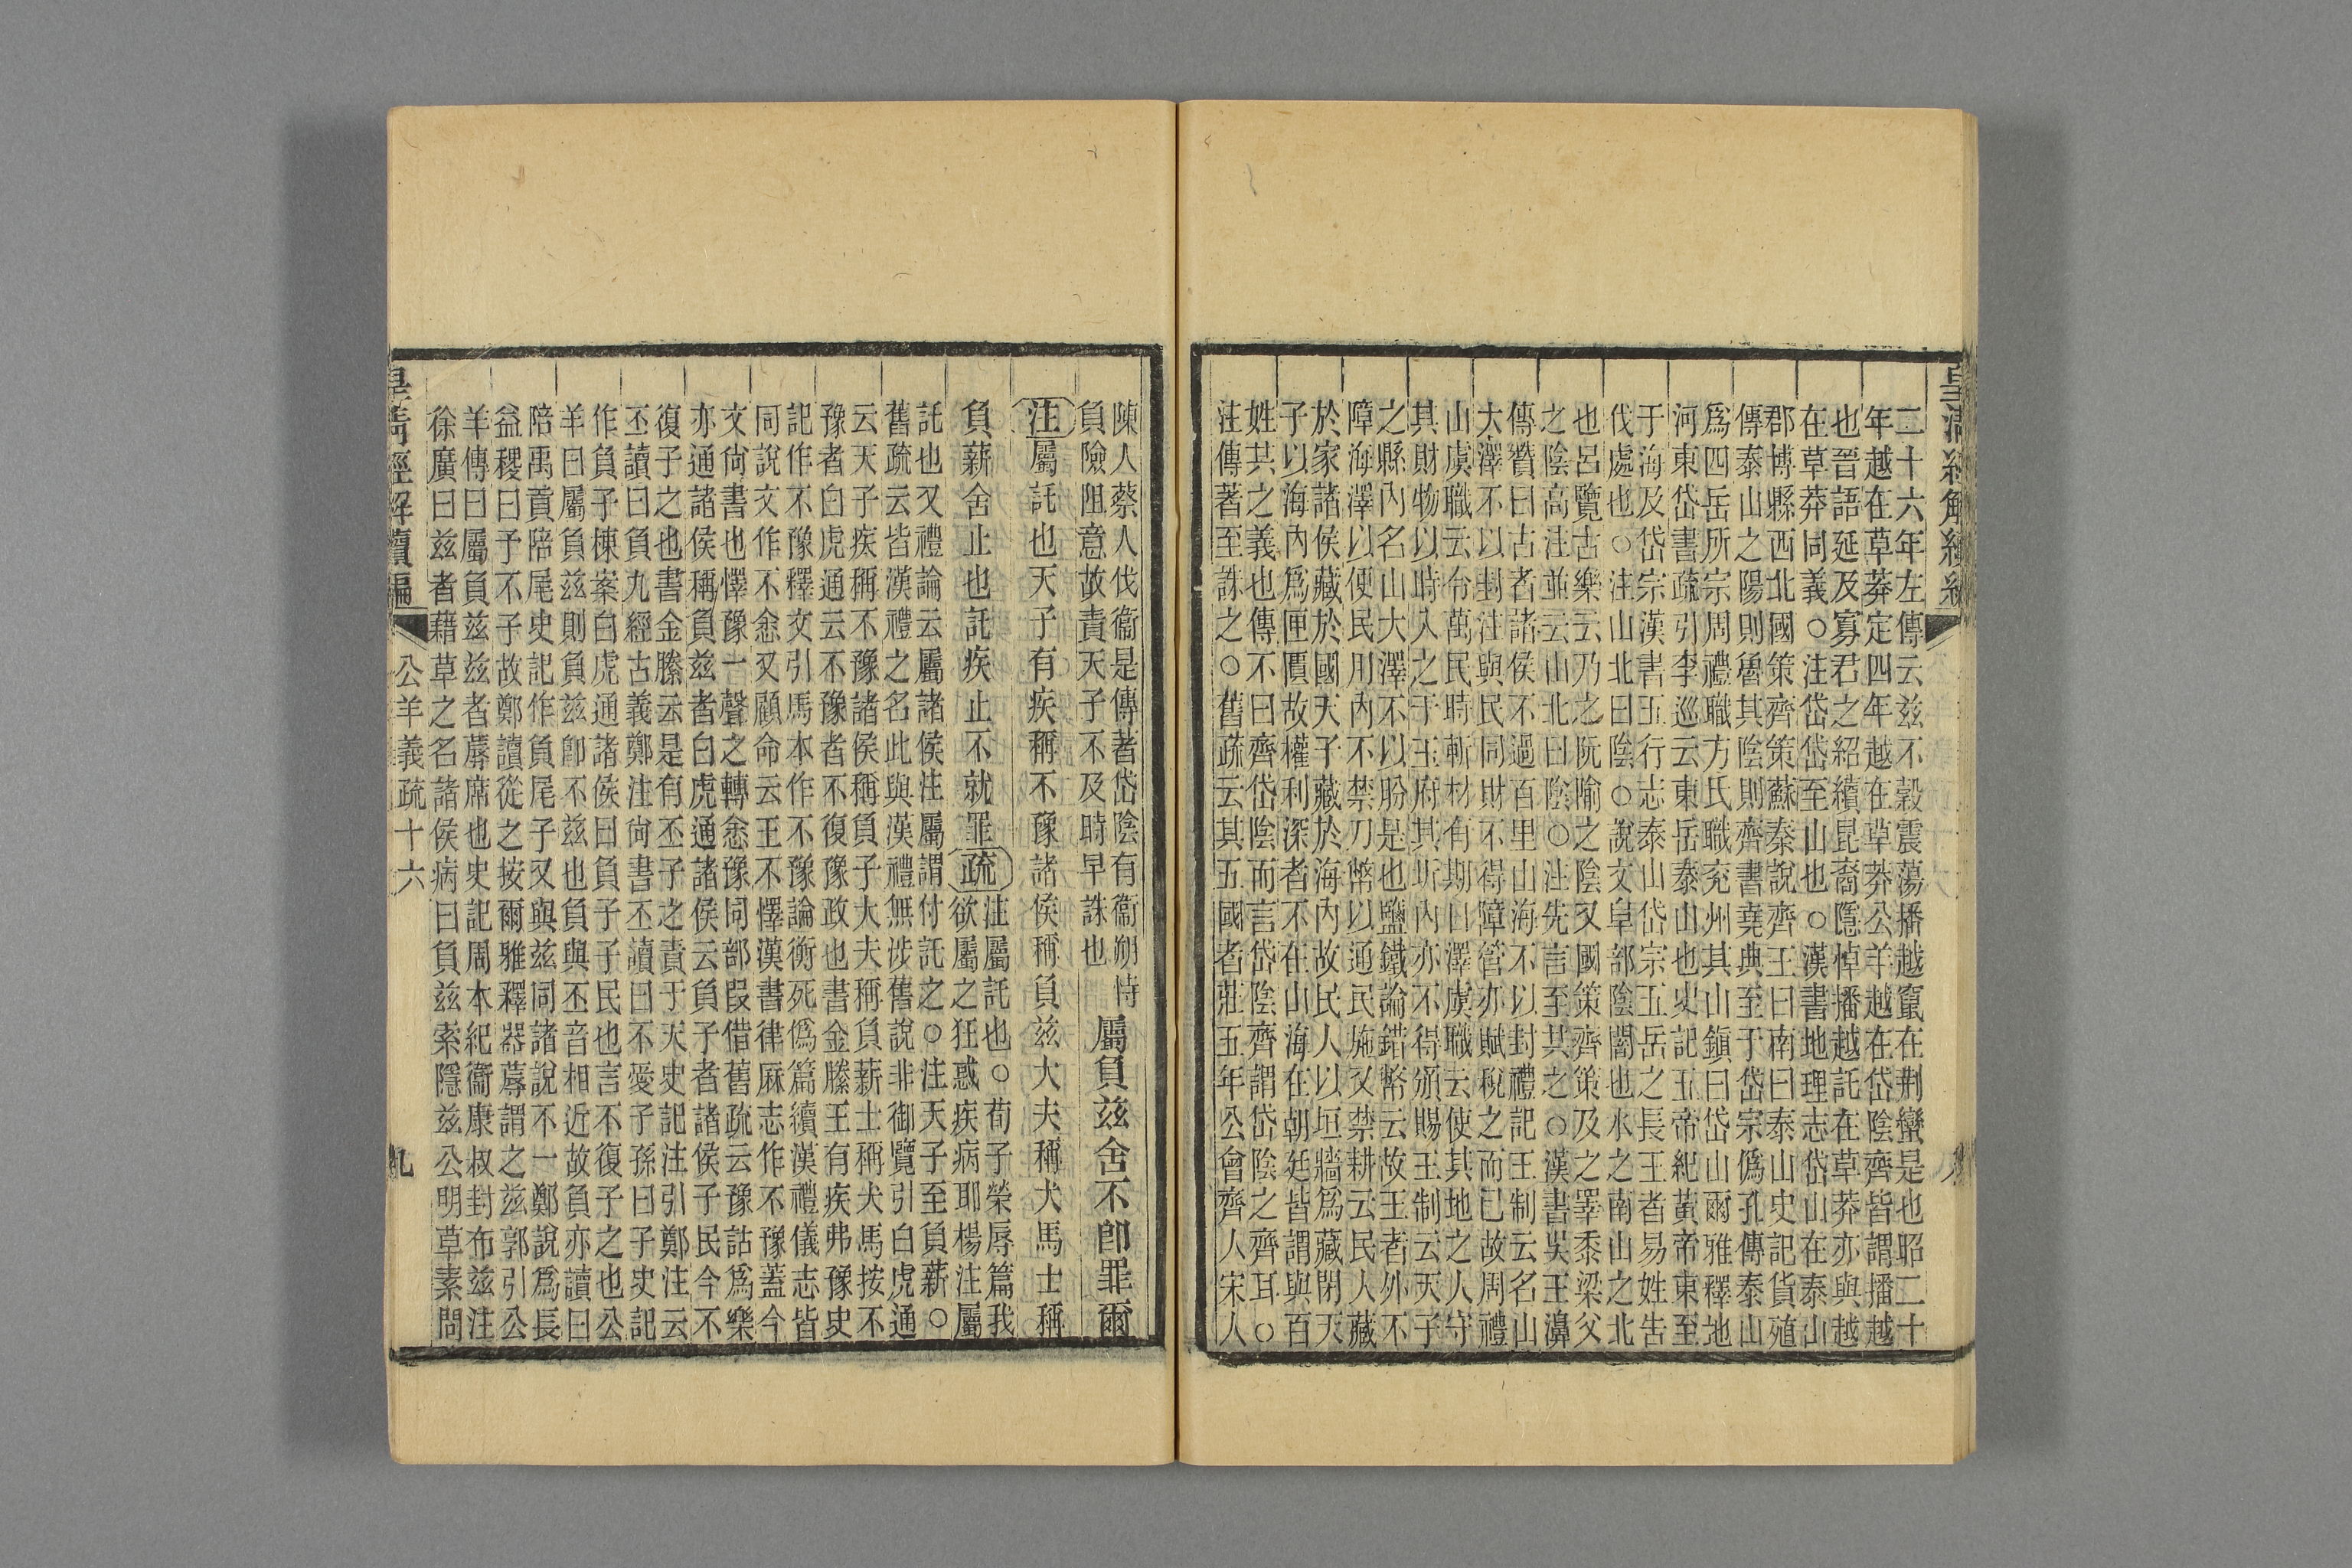 皇清經解續編
二十六年左傳云兹不穀震蕩播越竄在荆蠻是也昭二十
年越在草莽定四年越在草莽公羊越在岱陰齊皆謂播越
也晉語延及寡君之紹續昆裔隱悼播越託在草莽亦與越
在草莽同義○注岱岱至山也○漢書地理志岱山在泰山
郡博縣西北國策齊策蘇秦說齊王曰南曰泰山史記貨殖
傳泰山之陽則魯其陰則齊書堯典至于岱宗僞孔傳泰山
爲四岳所宗周禮職方氏職兖州其山鎮曰岱山爾雅釋地
河東岱書疏引李巡云東岳泰山也史記五帝紀黃帝東至
于海及岱宗漢書五行志泰山岱宗五岳之長王者易姓告
伐處也○注山北曰陰○說文𨸏部陰闇也水之南山之北
也呂覽古樂云乃之阮隃之陰又國策齊策及之睪黍梁父
之陰高注並云山北曰陰○注先言至其之○漢書吳王濞
傳贊曰古者諸侯不過百里山海不以封禮記王制云名山
大澤不以封注與民同財不得障管亦賦稅之而已故周禮
山虞職云令萬民時斬材有期日澤虞職云使其地之人守
其財物以時入之于玉府其圻內亦不得頒賜王制云天子
之縣內名山大澤不以朌是也鹽鐵論錯幣云故王者外不
障海澤以便民用內不禁刀幣以通民施又禁耕云民人藏
於家諸侯藏於國天子藏於海內故民人以垣牆爲藏閉天
子以海內爲匣匱故權利深者不在山海在朝廷皆謂與百
姓其之義也傳不曰齊岱陰而言岱陰齊謂岱陰之齊耳○
注傳著至誅之○舊疏云其五國者莊五年公會齊人宋人
陳人蔡人伐衞是傳著岱陰有衞朔恃
負險阻意故責天子不及時早誅也
屬負兹舍不卽罪爾
注屬託也天子有疾稱不豫諸侯稱負兹大夫稱犬馬士稱
負薪舍止也託疾止不就罪疏
注屬託也○荀子榮辱篇我
欲屬之狂惑疾病耶楊注屬
託也又禮論云屬諸侯注屬謂付託之○注天子至負薪○
舊疏云皆漢禮之名此與漢禮無涉舊說非御覽引白虎通
云天子疾稱不豫諸侯稱負子大夫稱負薪士稱犬馬按不
豫者白虎通云不豫者不復豫政也書金縢王有疾弗豫史
記作不豫釋文引馬本作不豫論衡死僞篇續漢禮儀志皆
同說文作不悆又顧命云王不懌漢書律厤志作不豫蓋今
文尙書也懌豫一聲之轉悆豫同部叚借舊疏云豫詁爲樂
亦通諸侯稱負兹者白虎通諸侯云負子者諸侯子民今不
復子之也書金縢云是有丕子之責于天史記注引鄭注云
丕讀曰負九經古義鄭注尙書丕讀曰不愛子孫曰子史記
作負子棟案白虎通諸侯曰負子子民也言不復子之也公
羊曰屬負兹則負兹卽不兹也負與丕音相近故負亦讀曰
陪禹貢陪尾史記作負尾子又與兹同諸說不一鄭說爲長
益稷曰予不子故鄭讀從之按爾雅釋器蓐謂之兹郭引公
羊傳曰屬負兹兹者蓐席也史記周本紀衞康叔封布兹注
徐廣曰兹者藉草之名諸侯病曰負兹索隱兹公明草素問
皇清經解續編
公羊義疏十六
九